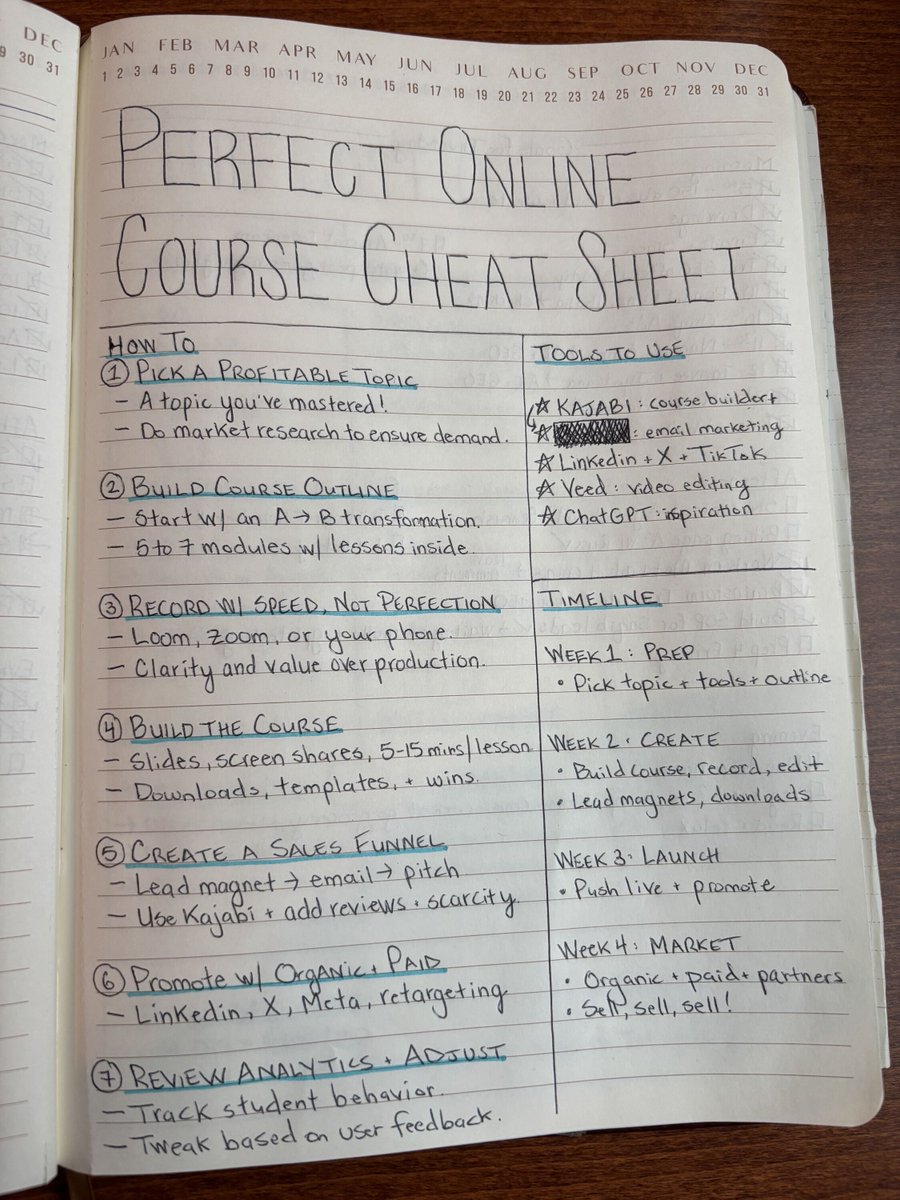 DEC
9 30 31
JAN FEB MAR APR MAY JUN JUL AUG SEP OCT NOV DEC
1 2 3 4 5 6 7 8 9 10 11 12 13 14 15 16 17 18 19 20 21 22 23 24 25 26 27 28 29 30 31
PERFECT ONLINE
COURSE CHEAT SHEET
HOW TO
① PICK A PROFITABLE TOPIC
– A topic you've mastered!
– Do market research to ensure demand.
② BUILD COURSE OUTLINE
– Start w/ an A → B transformation.
– 5 to 7 modules w/ lessons inside.
③ RECORD W/ SPEED, NOT PERFECTION
– Loom, Zoom, or your phone.
– Clarity and value over production.
④ BUILD THE COURSE
– Slides, screen shares, 5-15 mins/lesson
– Downloads, templates, + wins.
⑤ CREATE A SALES FUNNEL
– Lead magnet → email → pitch
– Use Kajabi + add reviews + scarcity.
⑥ PROMOTE W/ ORGANIC + PAID
– Linkedin, X, Meta, retargeting
⑦ REVIEW ANALYTICS + ADJUST
– Track student behavior.
– Tweak based on user feedback.
TOOLS TO USE
☆ KAJABI: course builder +
☆ : email marketing
☆ Linkedin + X + TikTok
☆ Veed: video editing
☆ ChatGPT: inspiration
TIMELINE
WEEK 1: PREP
• Pick topic + tools + outline
WEEK 2: CREATE
• Build course, record, edit
• Lead magnets, downloads
WEEK 3: LAUNCH
• Push live + promote
WEEK 4: MARKET
• Organic + paid + partners
• Sell, sell, sell!